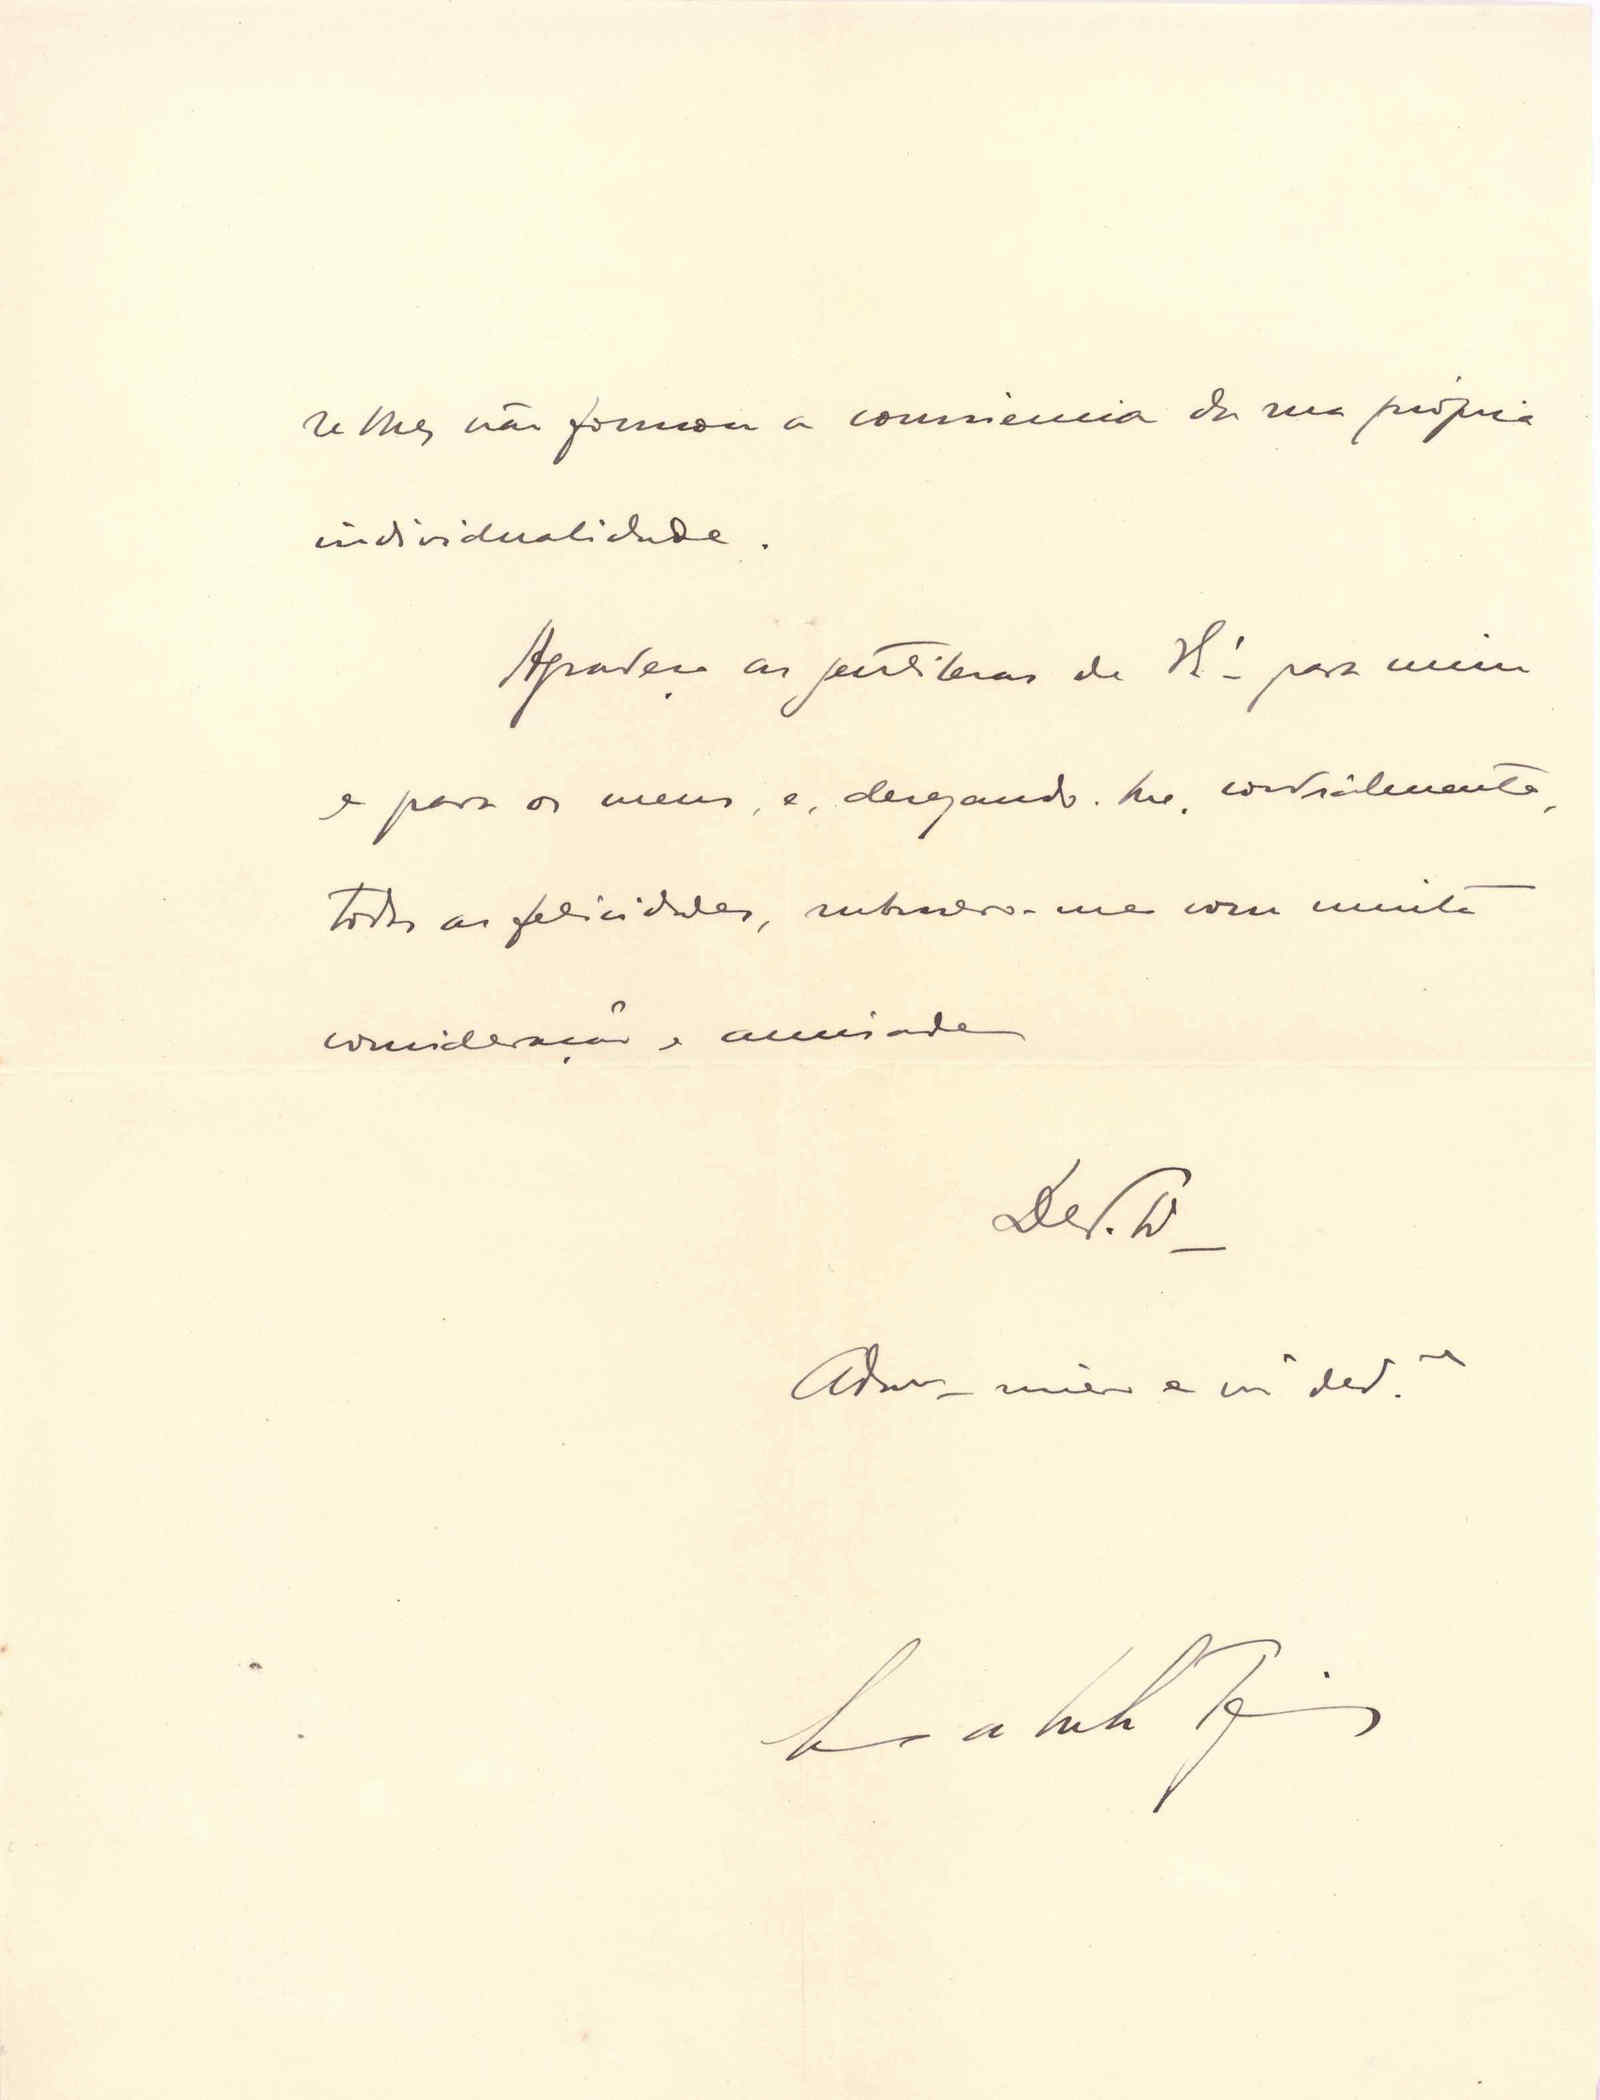 se lhes não formou a consciencia da sua própria
individualidade.
Agradeço as gentilezas de V. para mim
e para os meus, e, desejando-lhe, cordialmente,
todas as felicidades, subscrevo-me com muita
consideração e amisade
De V.
Adm. e ded.